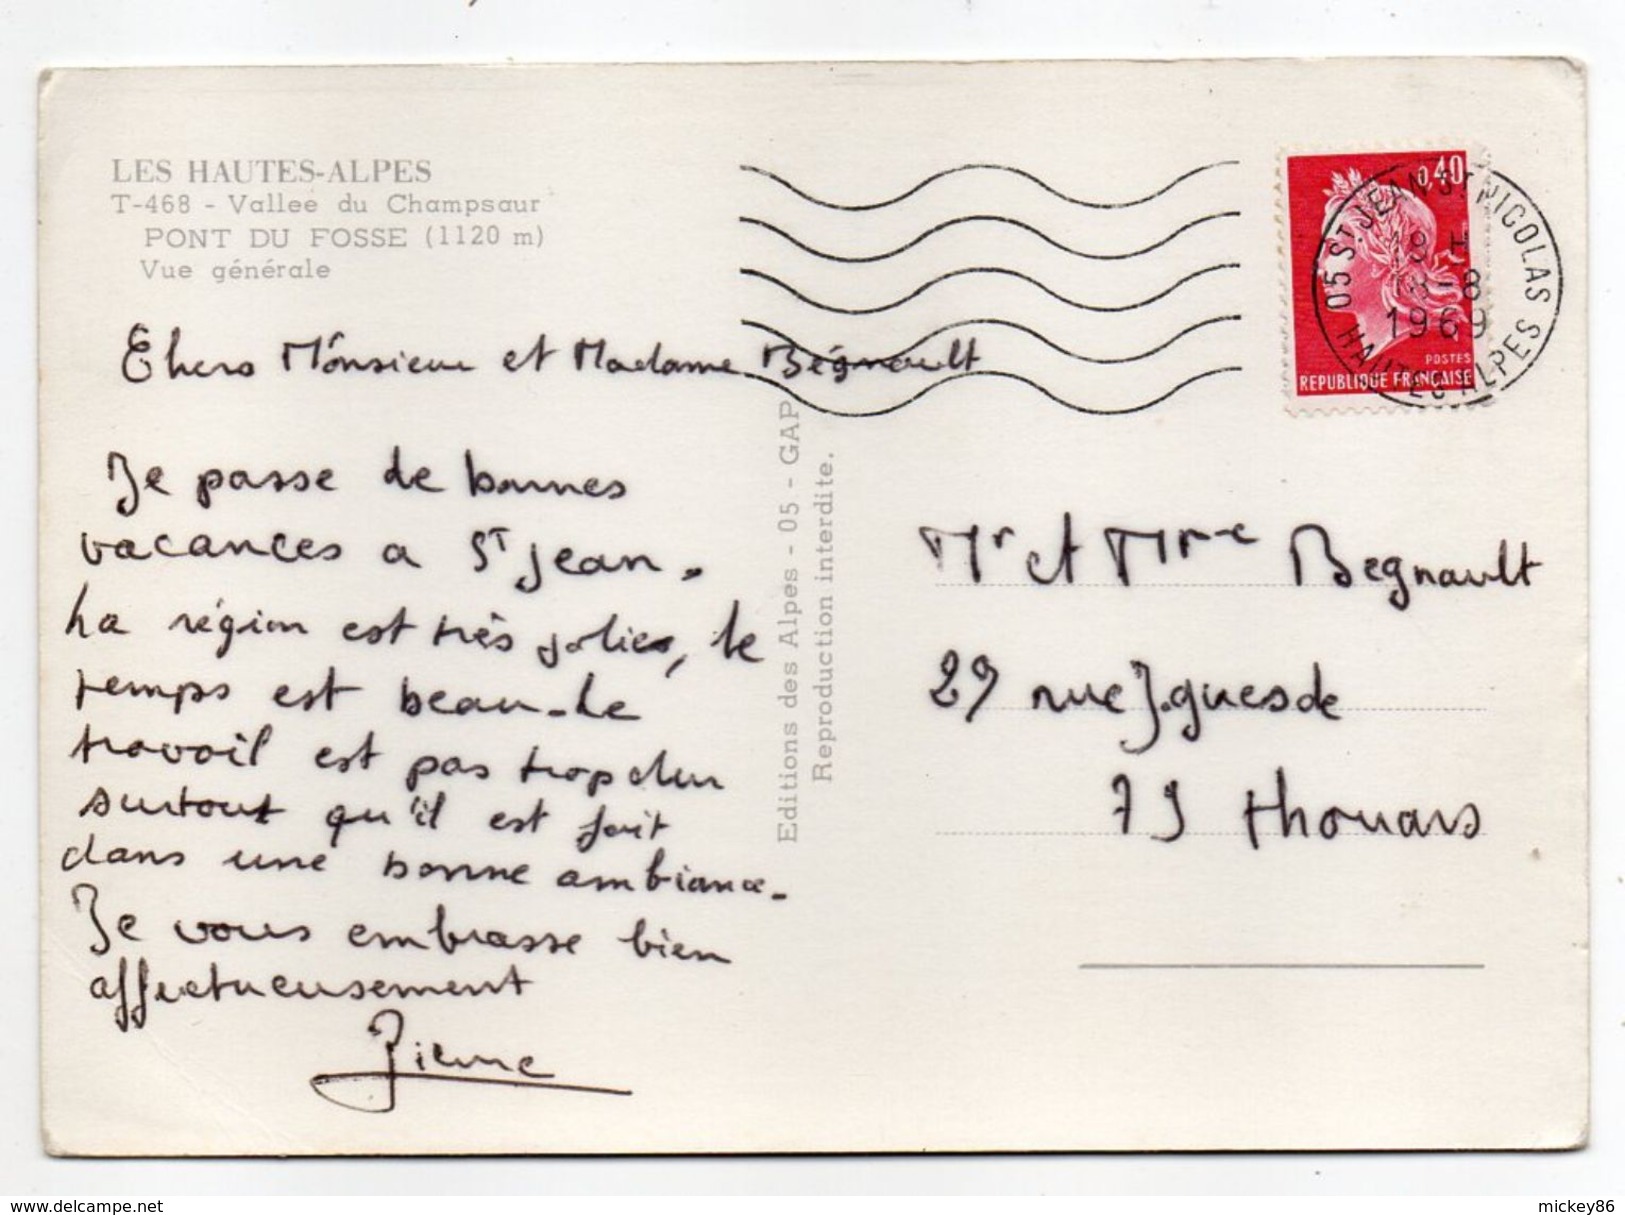 LES HAUTES-ALPES
T-468 - Vallee du Champsaur
PONT DU FOSSE (1120 m)
Vue générale
0,40
POSTES
REPUBLIQUE FRANÇAISE
05 ST JEAN ST NICOLAS
HAUTES ALPES
19 H
-8
1969
Chers Monsieur et Madame Bégnault
Je passe de bonnes
vacances a ST Jean.
La région est très jolie, le
temps est beau. Le
travail est pas trop dur
surtout qu'il est fait
dans une bonne ambiance.
Je vous embrasse bien
affectueusement
Pierre
Editions des Alpes - 05 - GAP
Reproduction interdite.
Mr et Mme Begnault
29 rue J. guesde
79 thouars
mickey86